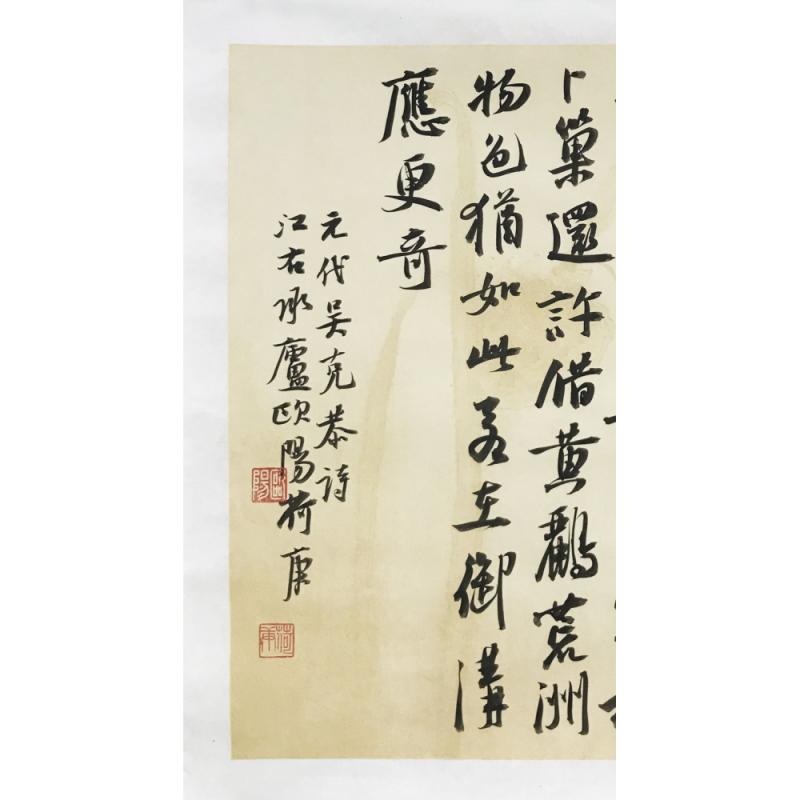 卜巢還許借黄鸝荒洲
物色猶如此若在御溝
應更奇
元代吴克恭詩
江右承廬欧陽荷庚